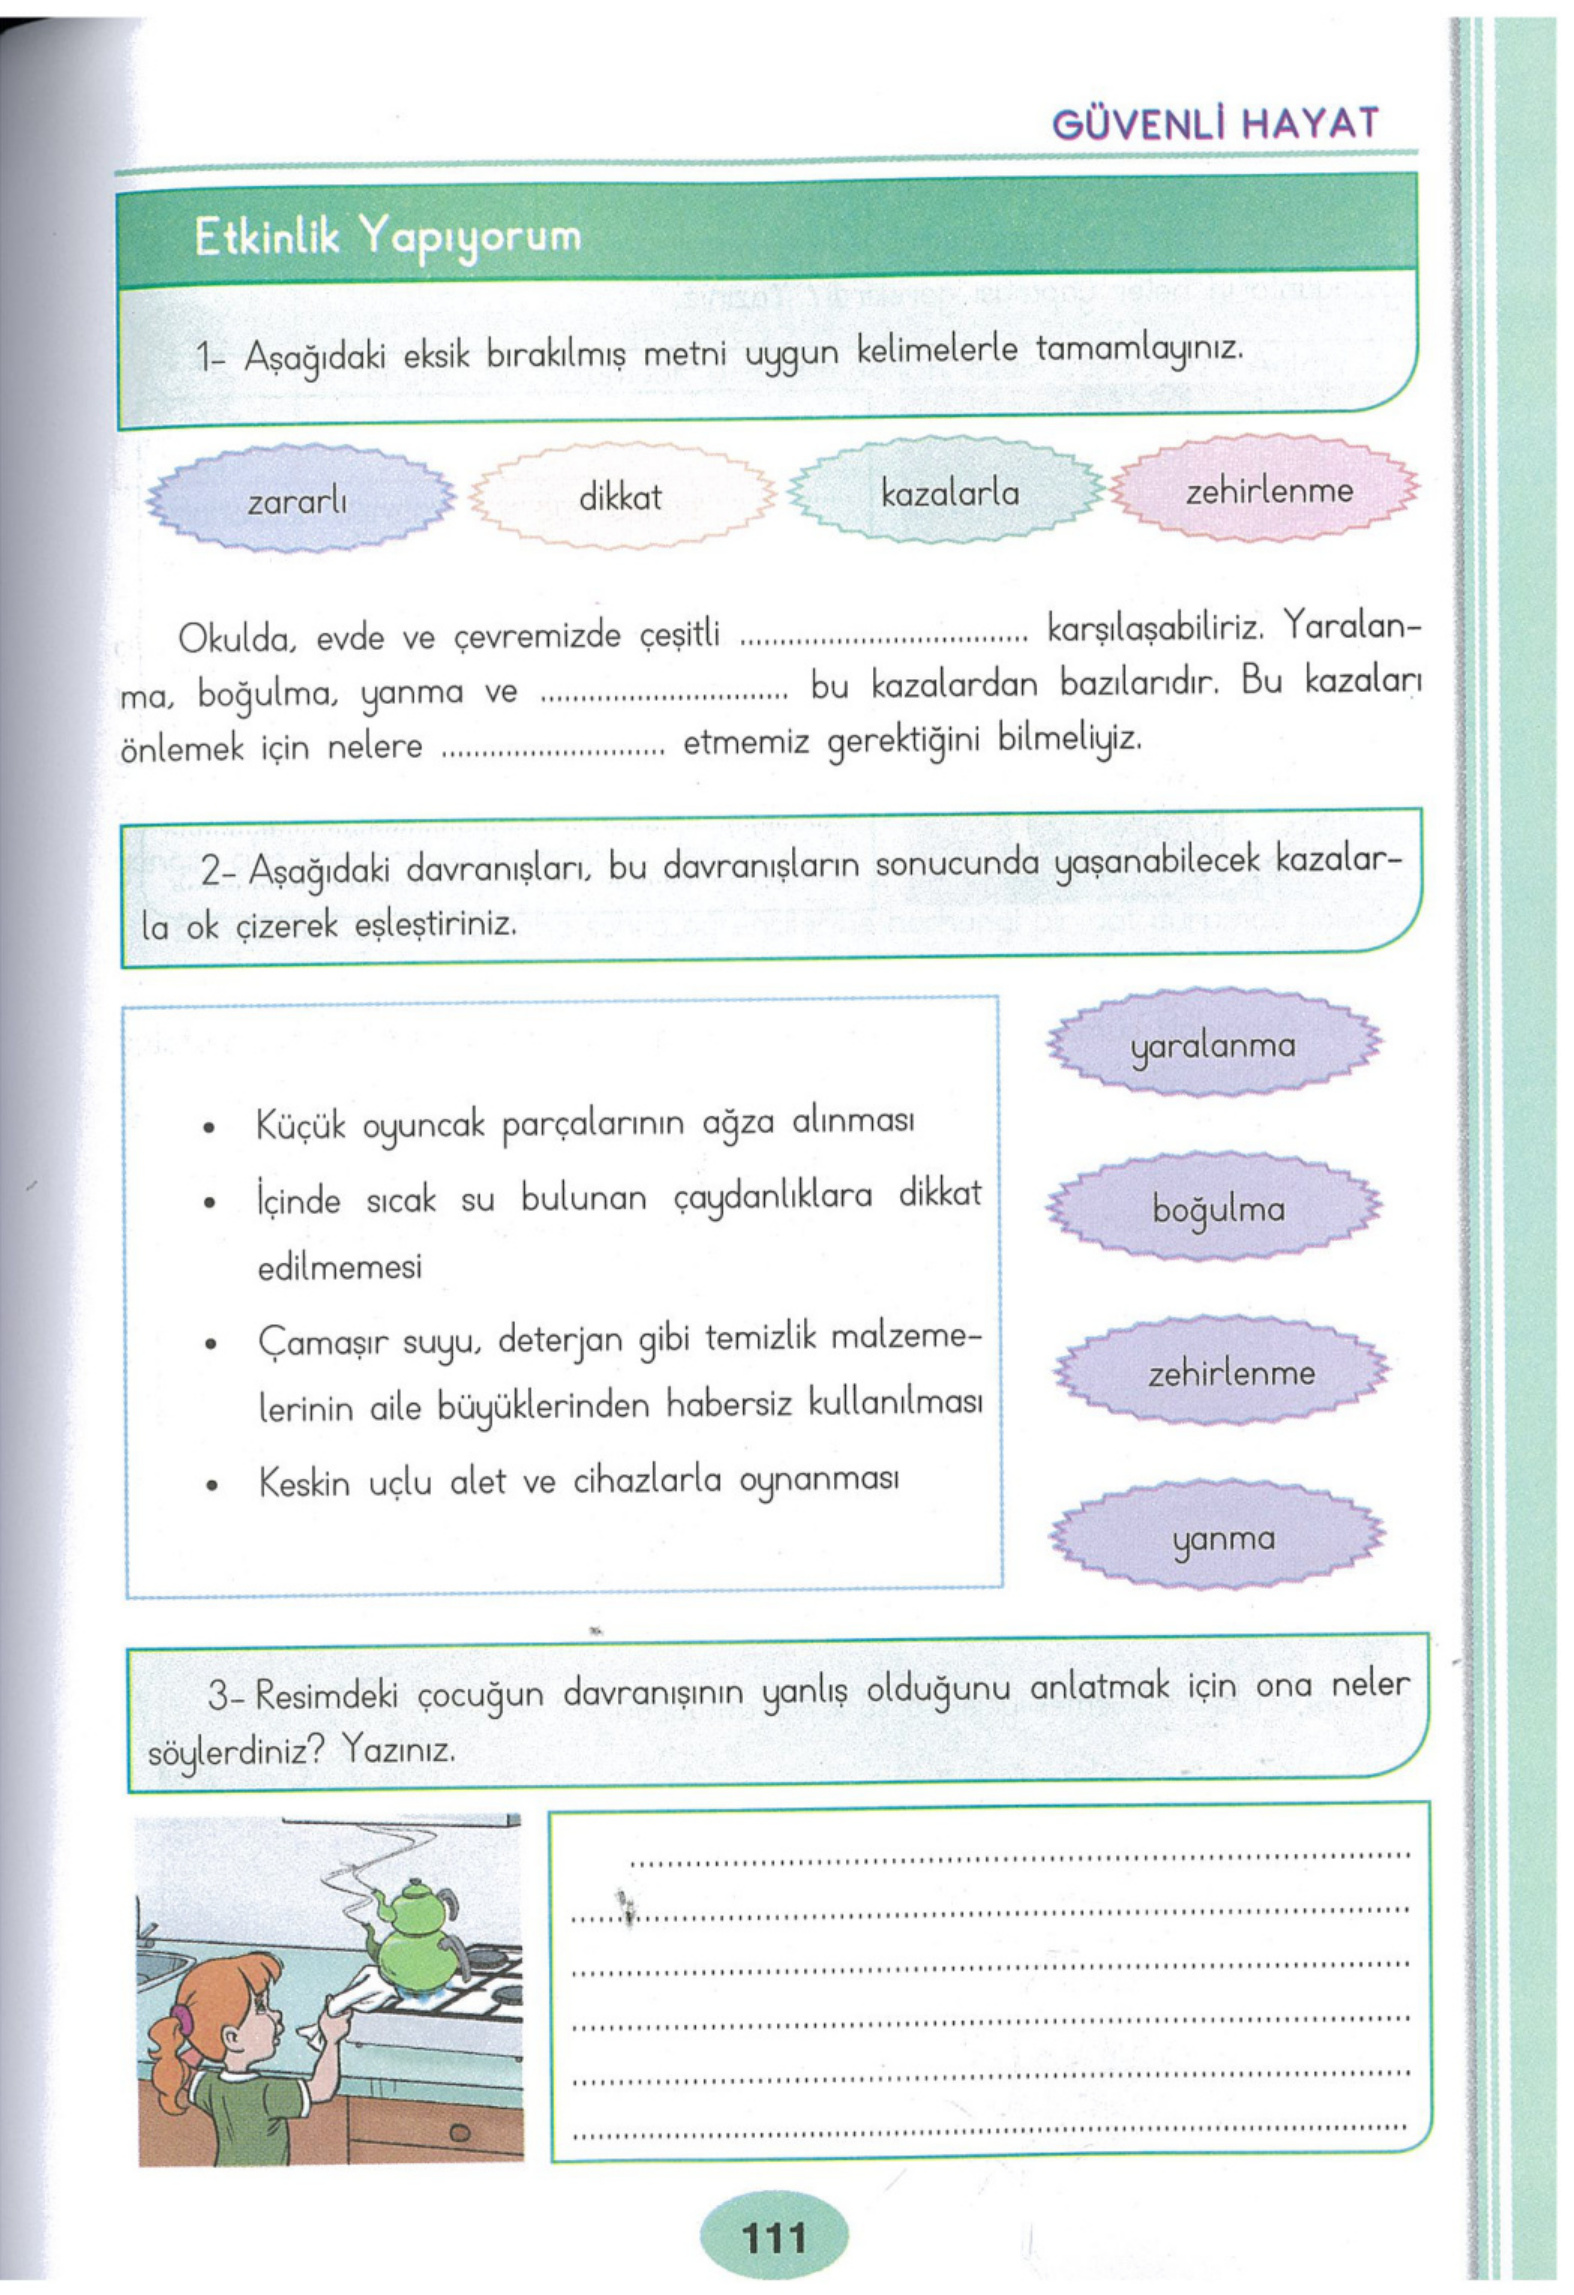 GÜVENLİ HAYAT
Etkinlik Yapıyorum
1- Aşağıdaki eksik bırakılmış metni uygun kelimelerle tamamlayınız.
zararlı dikkat kazalarla zehirlenme
Okulda, evde ve çevremizde çeşitli ................................ karşılaşabiliriz. Yaralan-
ma, boğulma, yanma ve ............................ bu kazalardan bazılarıdır. Bu kazaları
önlemek için nelere ......................... etmemiz gerektiğini bilmeliyiz.
2- Aşağıdaki davranışları, bu davranışların sonucunda yaşanabilecek kazalar-
la ok çizerek eşleştiriniz.
yaralanma
• Küçük oyuncak parçalarının ağza alınması
• İçinde sıcak su bulunan çaydanlıklara dikkat
boğulma
edilmemesi
• Çamaşır suyu, deterjan gibi temizlik malzeme-
zehirlenme
lerinin aile büyüklerinden habersiz kullanılması
• Keskin uçlu alet ve cihazlarla oynanması
yanma
3- Resimdeki çocuğun davranışının yanlış olduğunu anlatmak için ona neler
söylerdiniz? Yazınız.
111